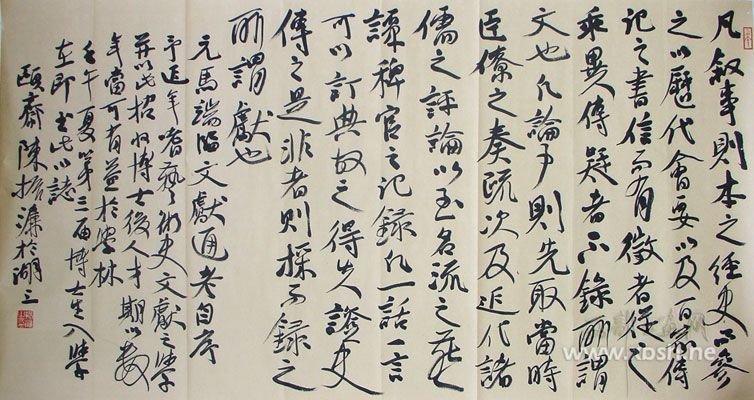 凡敘事則本之經史而參
之以歷代會要以及百家傳
記之書信而有徵者從之
乖異傳疑者不錄所謂
文也凡論事則先取當時
臣僚之奏疏次及近代諸
儒之評論以至名流之燕
談稗官之記錄凡一話一言
可以訂典故之得失證史
傳之是非者則採而錄之
所謂獻也
元馬端臨文獻通考自序
予近年嗜藝術史文獻之學
并以此招收博士後人才期以數
年當可有益於學林
壬午夏第三屆博士生入學
在即書此以誌
頤齋陳振濂於湖上